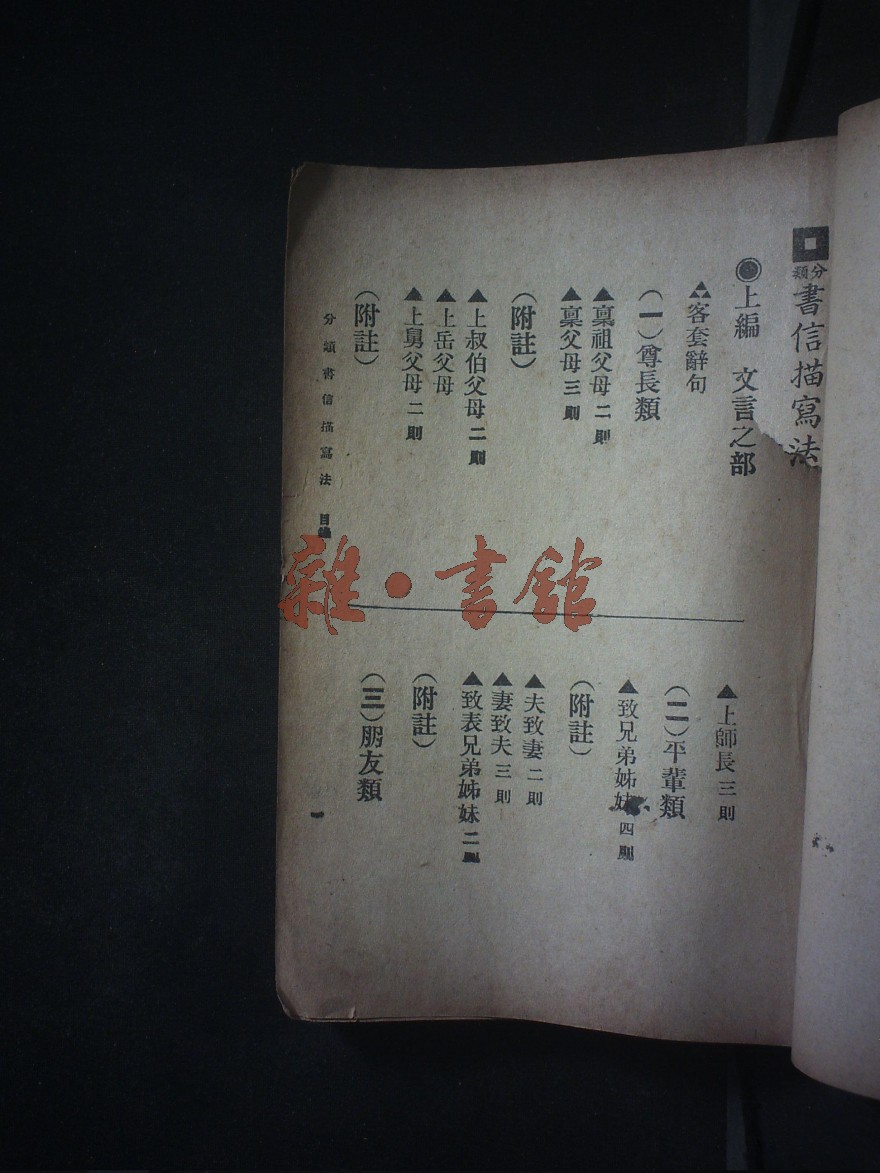 分類書信描寫法
上編 文言之部
客套辭句
(一)尊長類
▲稟祖父母二則
▲稟父母三則
(附註)
▲上叔伯父母二則
▲上岳父母
▲上舅父母二則
(附註)
▲上師長三則
(二)平輩類
▲致兄弟姊妹四則
(附註)
▲夫致妻二則
▲妻致夫三則
▲致表兄弟姊妹二則
(附註)
(三)朋友類
分類書信描寫法 目錄
一
雜·書館